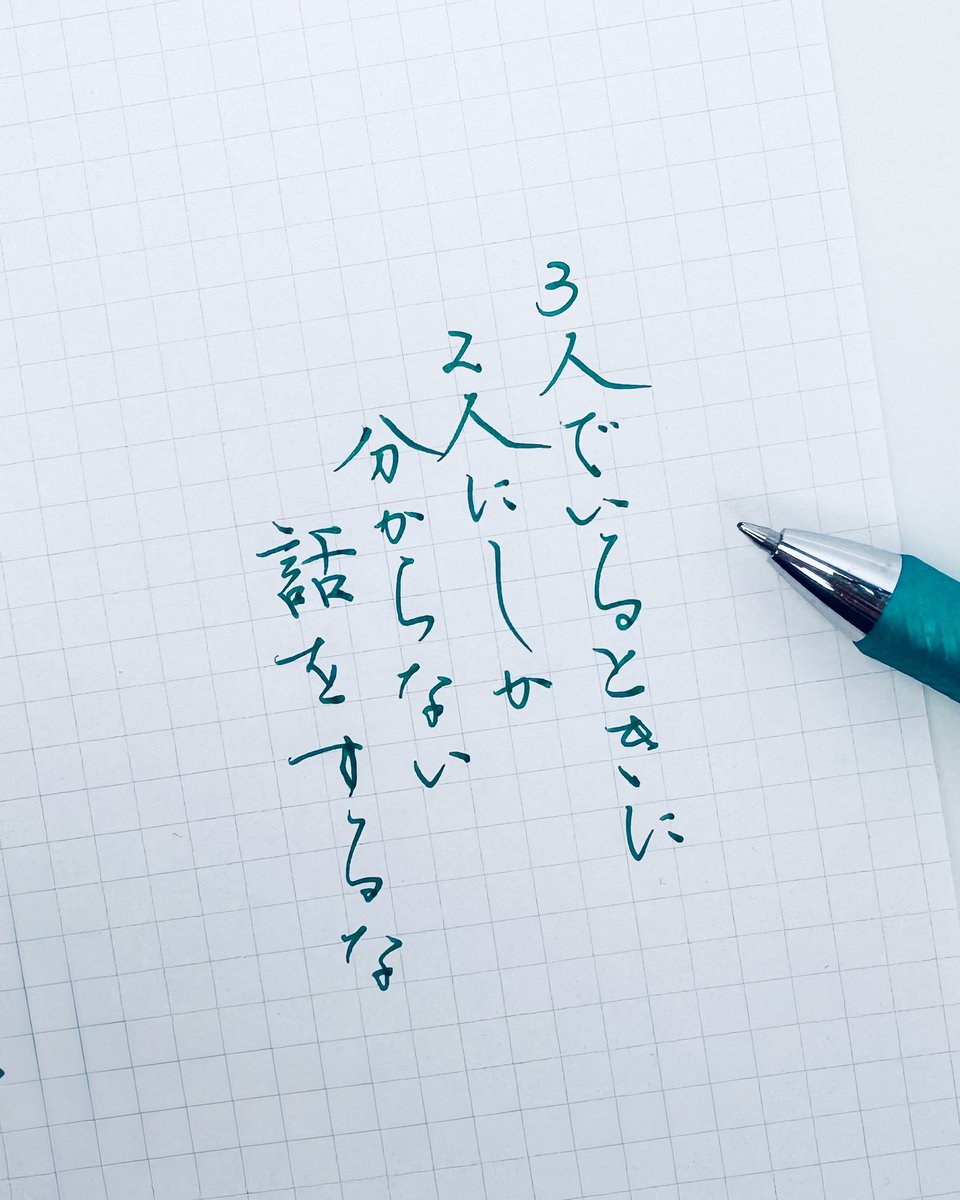 3人でいるときに
2人にしか
分からない
話をするな